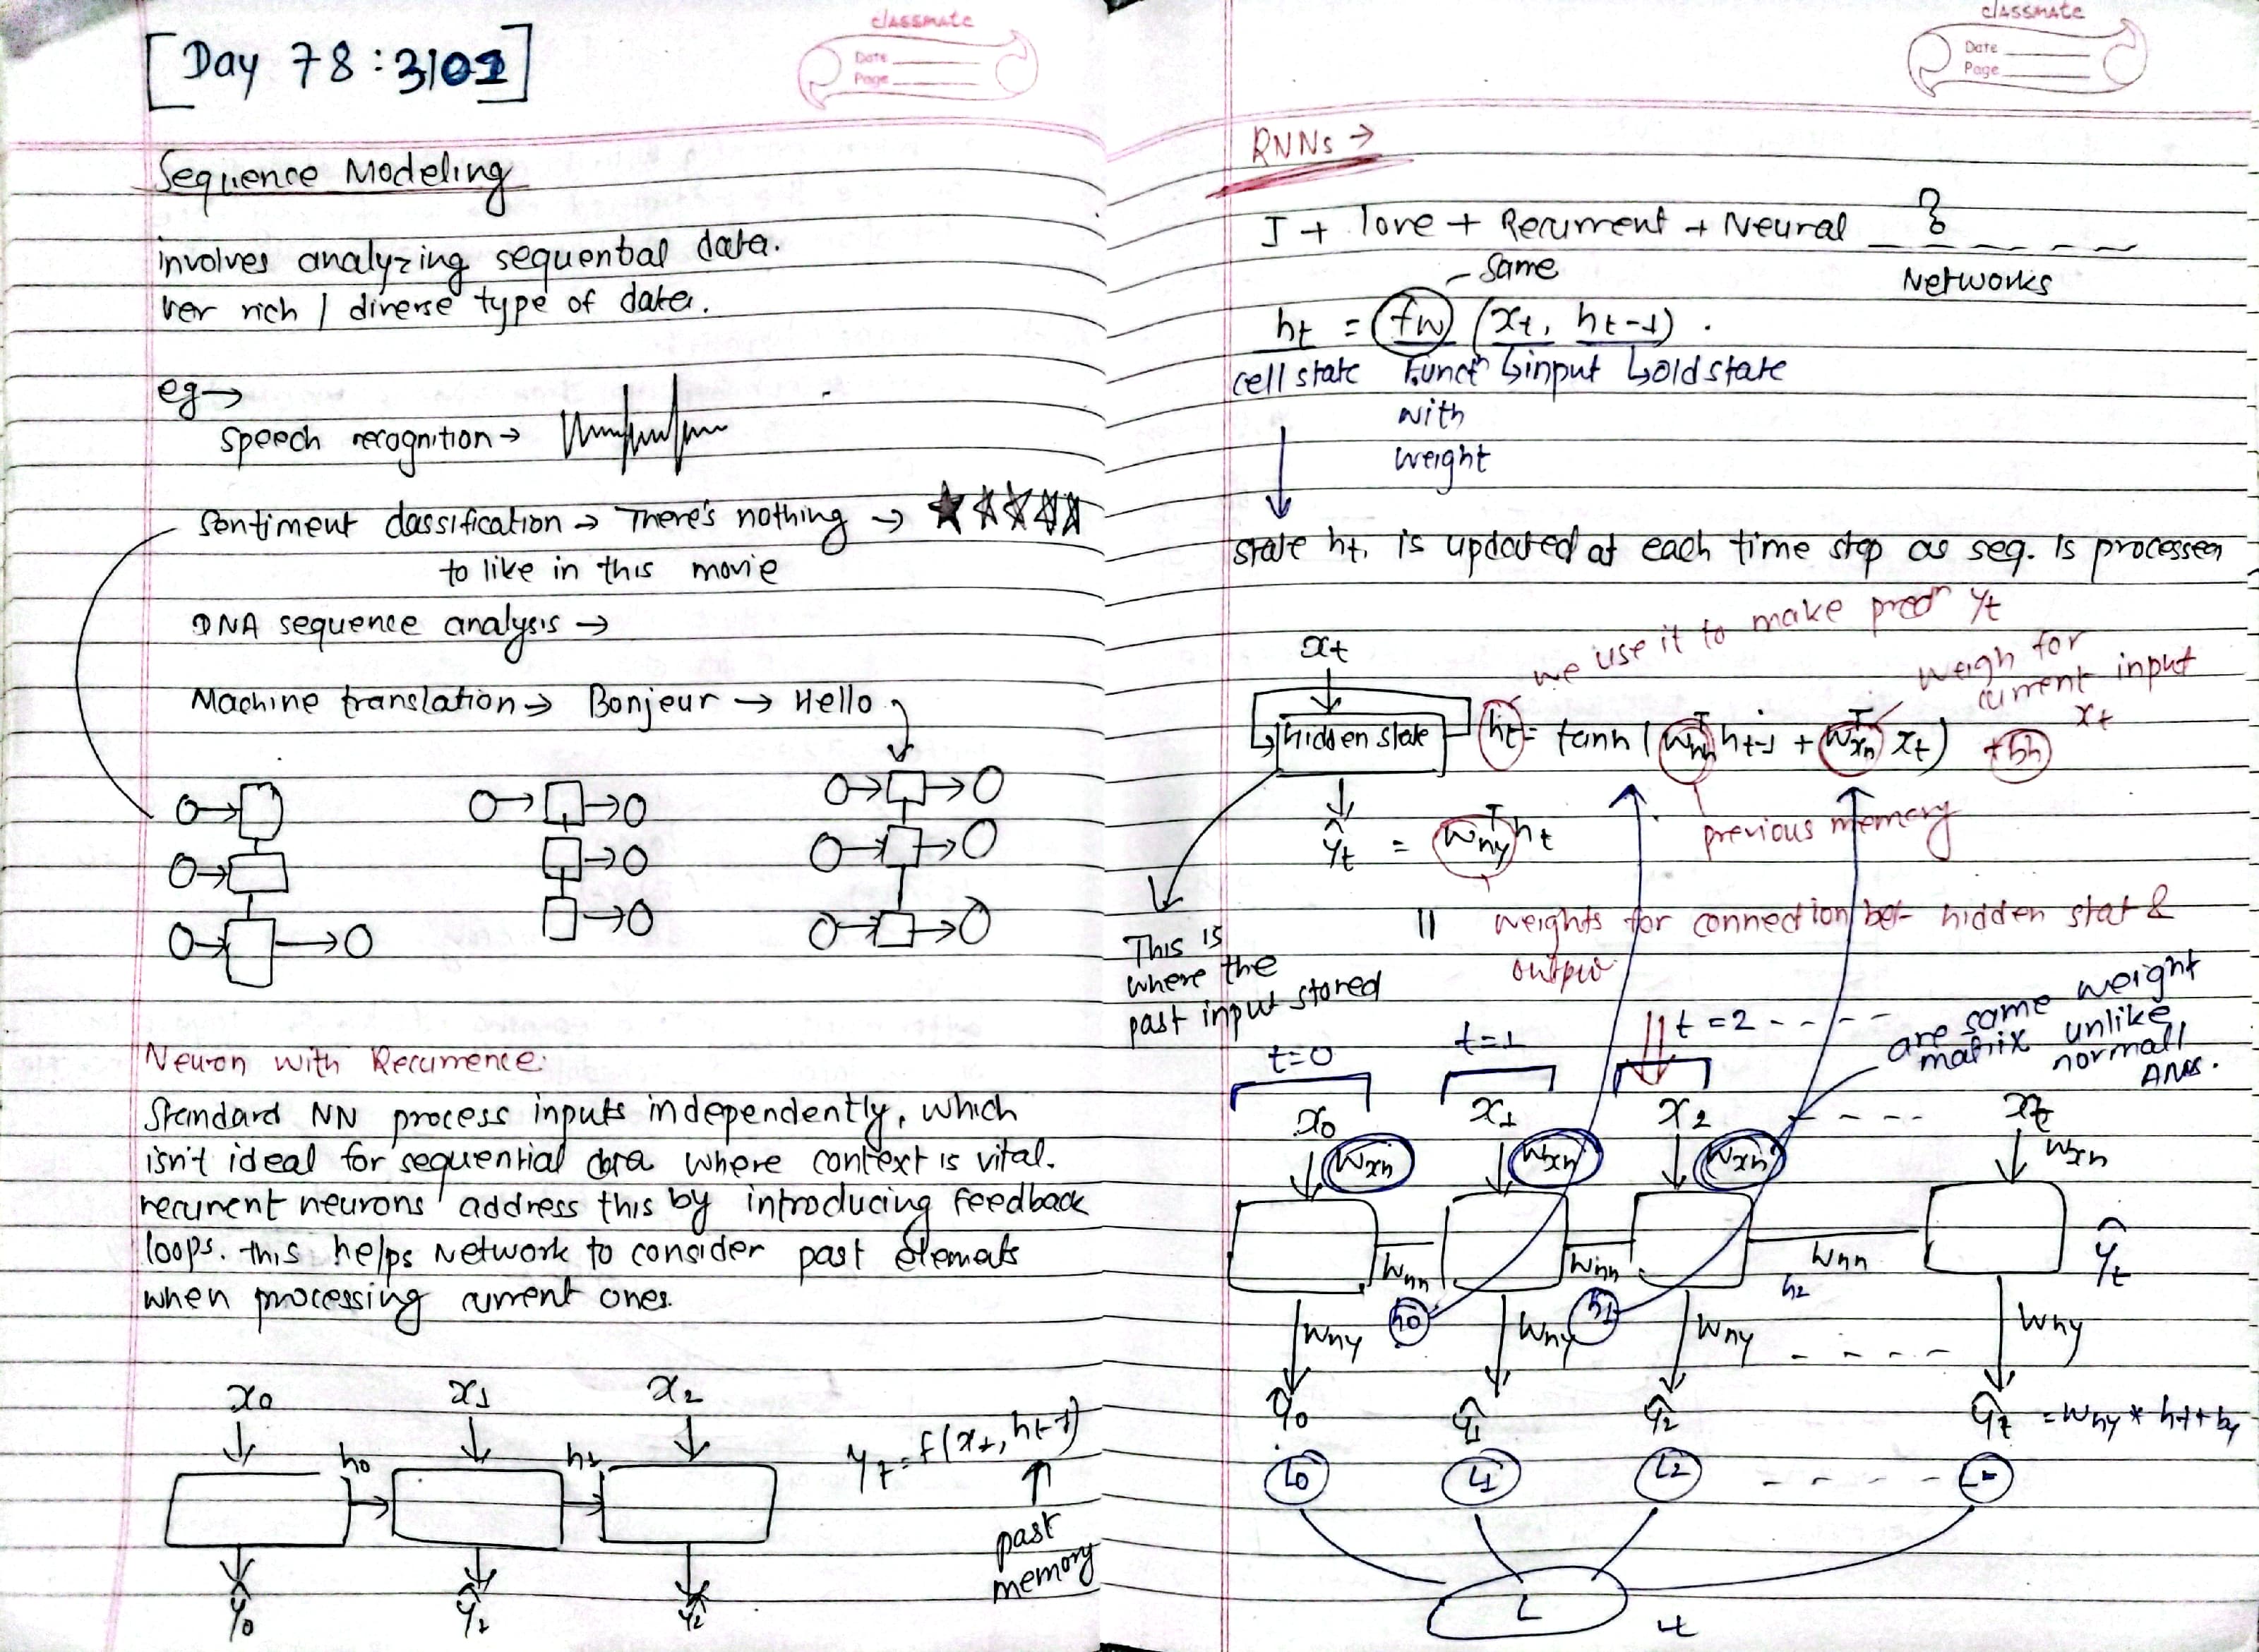 classmate
Date
Page
[Day 78 : 3/01]
Sequence Modeling
involves analyzing sequential data.
ver rich / diverse type of data.
eg→
speech recognition →
Sentiment classification → There's nothing →
to like in this movie
DNA sequence analysis →
Machine translation → Bonjeur → Hello
Neuron with Recurrence:
Standard NN process inputs independently, which
isn't ideal for sequential data where context is vital.
recurrent neurons address this by introducing feedback
loops. this helps Network to consider past elements
when processing current ones.
x0 x1 x2
h0 h1
yt = f(xt, ht-1)
past
memory
ŷ0 ŷ1 ŷ2
classmate
Date
Page
RNNs →
I + love + Recurrent + Neural ?
Networks
same
ht = fw (xt, ht-1).
cell state Functn ↳input ↳old state
with
weight
state ht, is updated at each time step as seq. is processed
xt
we use it to make predn yt
weigh for
current input
xt
hidden state ht = tanh (WhhT ht-1 + WxhT xt) + bh
previous memory
ŷt = WhyT ht
|| weights for connection bet hidden stat &
output
This is
where the
past input stored
are same weight
matrix unlike
normall
ANNs.
t=0 t=1 t=2 - - - -
x0 x1 x2 - - - - xt
Wxh Wxh Wxh Wxh
Whh Whh Whh
h0 h1 h2
ŷt
Why Why Why - - - - Why
ŷ0 ŷ1 ŷ2 ŷt = Why * ht + by
L0 L1 L2 - - - -
L